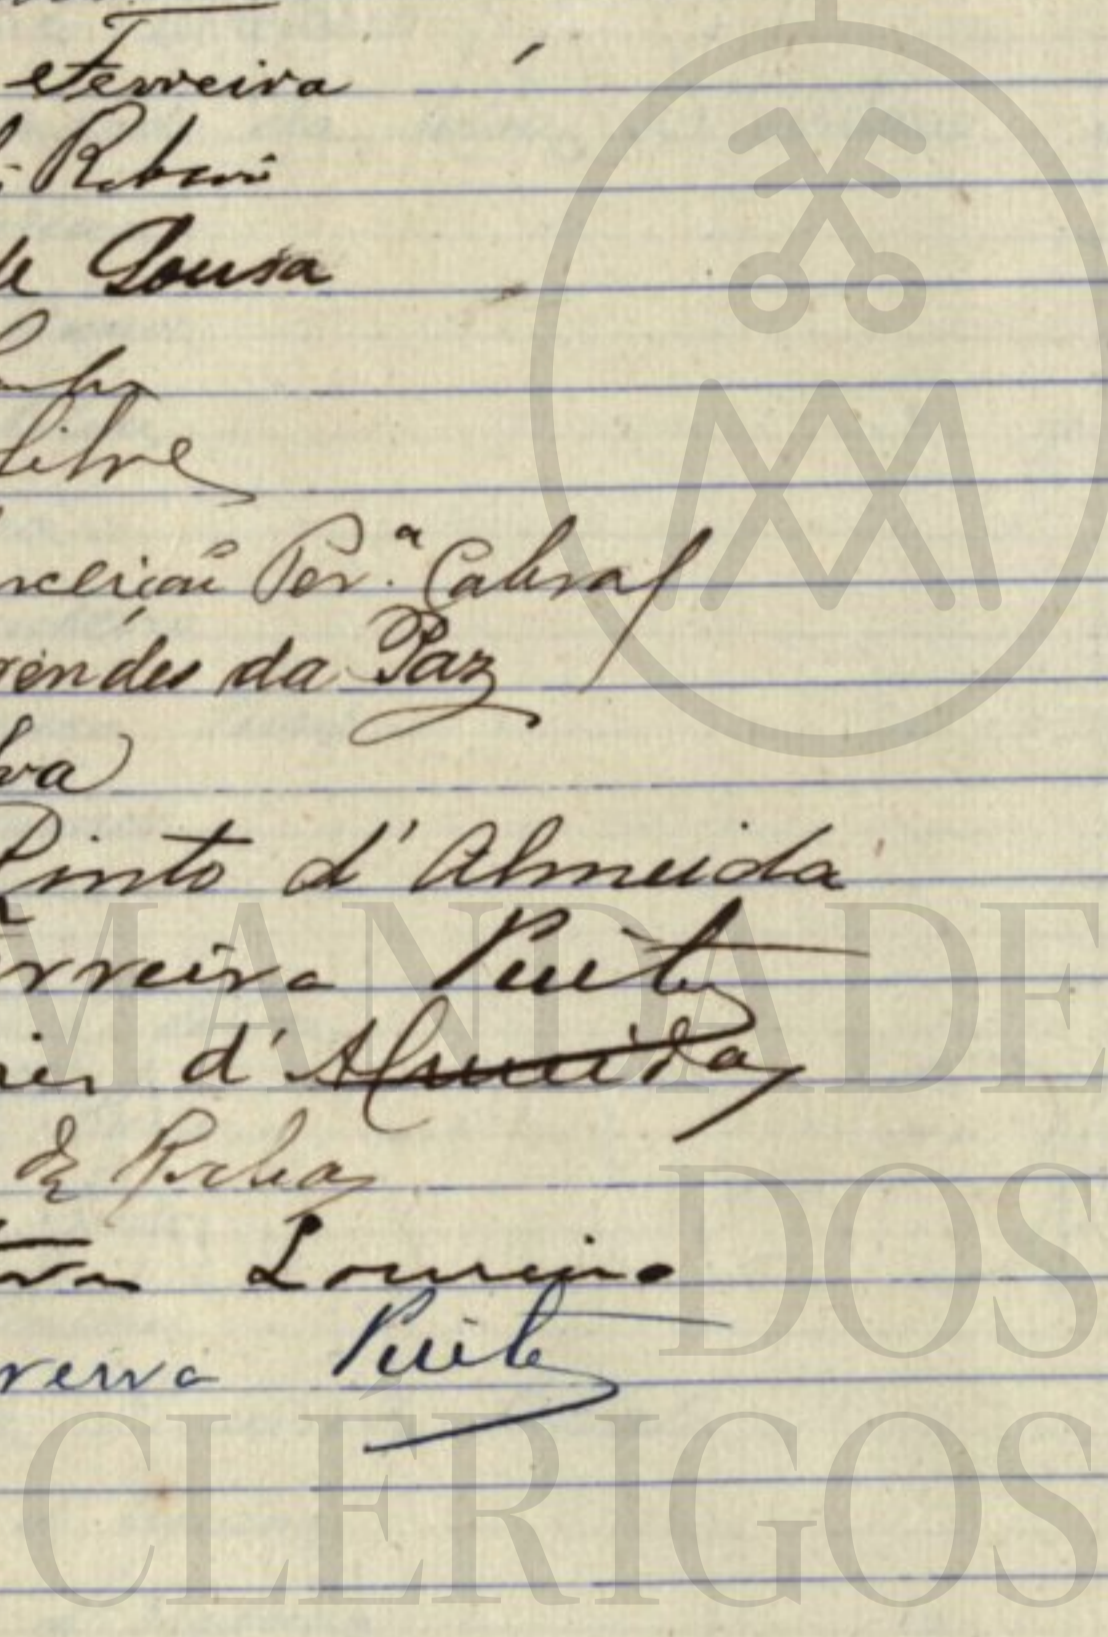 Ferreira
Ribeiro
de Sousa
Cunha
Silva
nceição Per.ª Cabral
endes da Paz
lva
Pinto d'Almeida
erreira Pinto
d'Almeida
da Rocha
Loureiro
reira Pinto
MANDADE
DOS
CLÉRIGOS